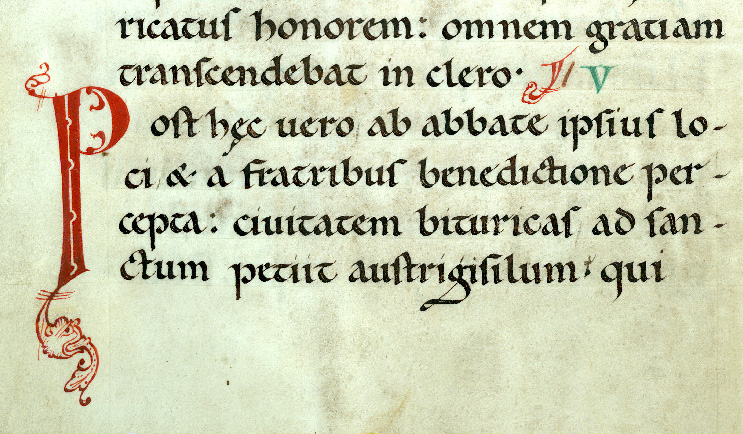 ricatus honorem: omnem gratiam
transcendebat in clero· IV
Post hęc uero ab abbate ipsius lo-
ci & a fratribus benedictione per-
cepta: ciuitatem bituricas ad san-
ctum petiit austrigisilum; qui